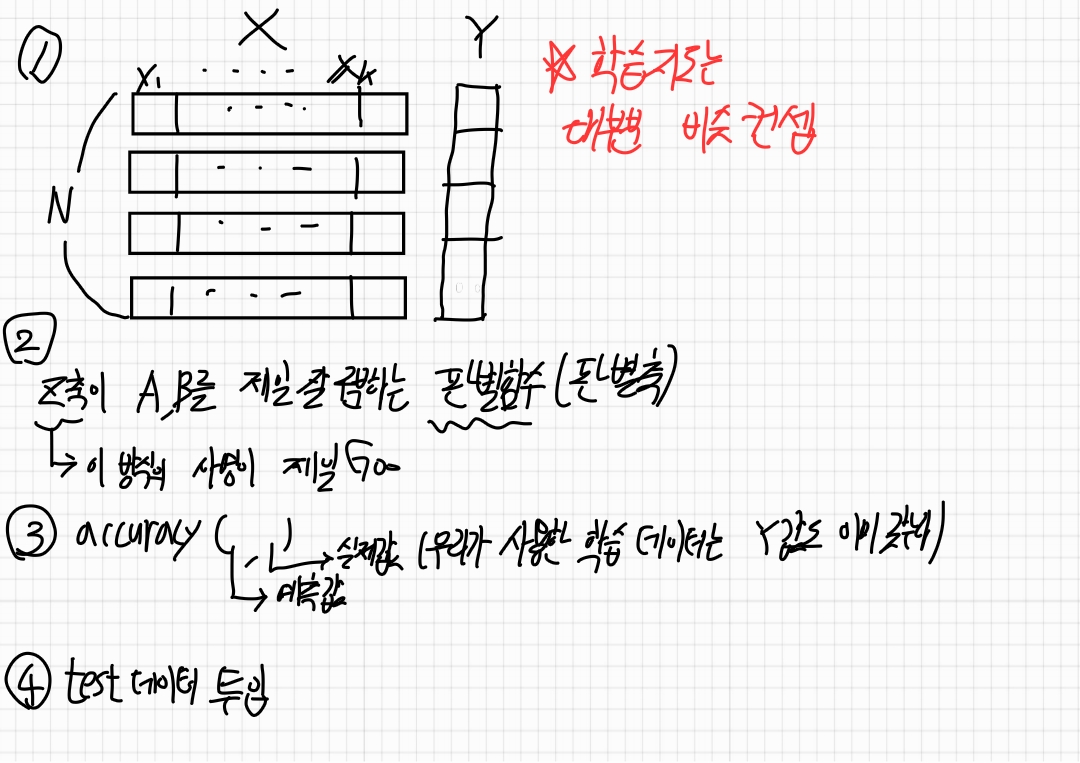 ① X Y
X₁ · · · · X₄
N
☆ 학습지도는
대부분 비슷 컨셉
②
Z축이 A,B를 제일 잘 구분하는 판별함수 (판별축)
→ 이 방식의 사용이 제일 Goo
③ accuracy ( , )
→ 실제값 (우리가 사용한 학습 데이터는 Y값도 이미 갖춰)
→ 예측값
④ test 데이터 투입